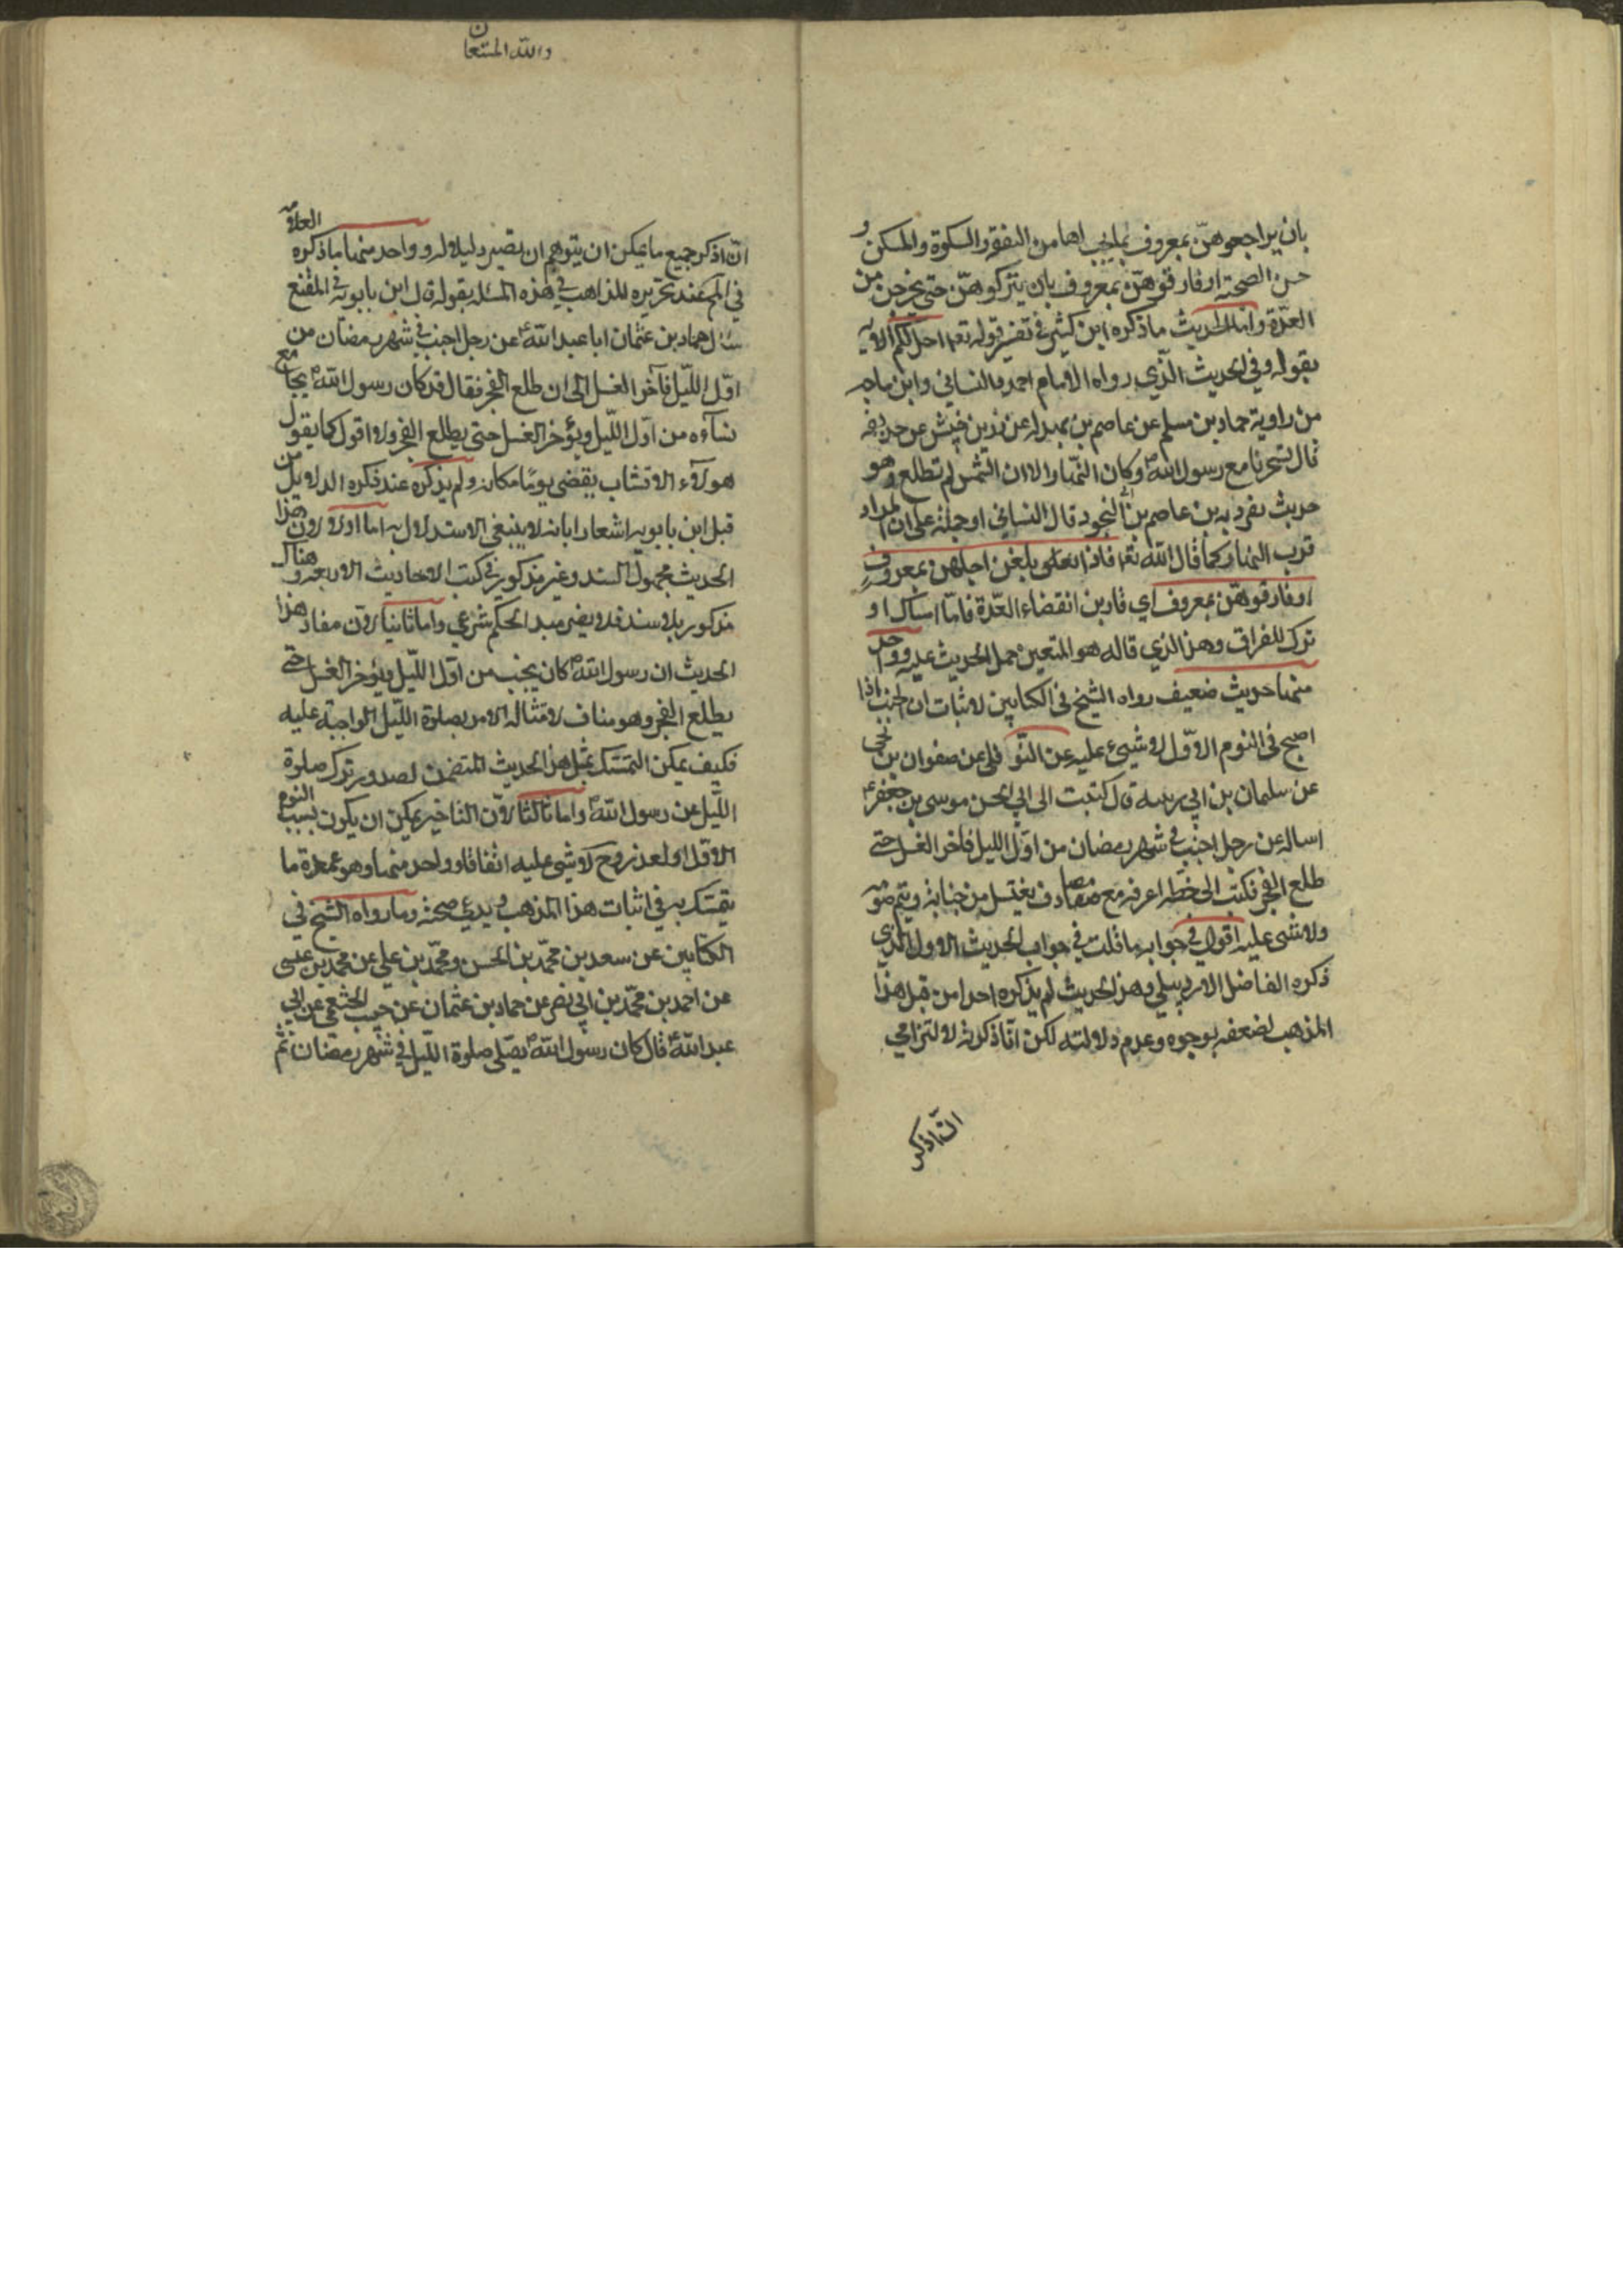 بان يراجعوهنّ بمعروف بما يجب لها من النفقة والكسوة والمسكن و
حسن الصحبة او فارقوهنّ بمعروف بان يتركوهنّ حتى يخرجن من
العدّة واما الحديث ما ذكره ابن كثير في تفسير قوله تعه احل لكم الاية
بقوله وفي الحديث الّذي رواه الامام احمد والنسائي وابن ماجه
من رواية حماد بن مسلم عن عاصم بن بهدله عن زر بن حبيش عن حذيفه
قال تسحرنا مع رسول الله ص وكان النهار الا ان الشمس لم تطلع وهو
حديث تفرد به بن عاصم بن ابي النجود قال النسائي او حمله على ان المراد
قرب النهار كما قال الله تعه فاذا بلغن اجلهن بمعروف
او فارقوهنّ بمعروف اي قاربن انقضاء العدّة فامّا امساك او
ترك للفراق وهذا الذي قاله هو المتعين حمل الحديث عليه وواحد
منها حديث ضعيف رواه الشيخ في الكتابين لاثبات ان الجنب اذا
اصبح في النوم الاوّل لا شيئ عليه عن النوفلي عن صفوان بن يحيى
عن سليمان بن ابي زينبه قال كتبت الى ابي الحسن موسى بن جعفر ع
اساله عن رجل اجنب في شهر رمضان من اوّل الليل فاخر الغسل حتى
طلع الفجر فكتب الى بخطّه اعرفه مع مصادف يغتسل من جنابته ويتم صومه
ولا شئ عليه اقول في جوابه ما قلت في جواب الحديث الاول الّذي
ذكره الفاضل الاردبيلي وهذا الحديث لم يذكره احد من قبل هذا
المذهب لضعفه بوجوه وعدم دلالته لكن انا ذكرته لالتزامي
ان اذكر
والله المستعان
ان اذكر جميع ما يمكن ان يتوهم ان يصير دليلا له وواحد منها ما ذكره العلامه
في الم عند تحريره للمذاهب في هذه المسئله بقوله قال ابن بابويه في المقنع
سئل حماد بن عثمان ابا عبد الله ع عن رجل اجنب في شهر رمضان من
اوّل اللّيل فآخر الغسل الى ان طلع الفجر فقال قد كان رسول الله ص يجامع
نسآءه من اوّل اللّيل ويؤخر الغسل حتى يطلع الفجر ولا اقول كما يقول
هولآء الاقشاب يقضي يومًا مكانه ولم يذكره عند ذكره الدلايل من
قبل ابن بابويه اشعارا بانه لا ينبغي الاستدلال به اما اولا لان هذا
الحديث مجهول السند وغير مذكور في كتب الاحاديث الاربعه وهناك
مذكور بلا سند فلا يصير سند الحكم شرعي واما ثانيا لان مفاد هذا
الحديث ان رسول الله ص كان يجنب من اوّل اللّيل ويؤخر الغسل حتى
يطلع الفجر وهو مناف لامتثاله الامر بصلوة اللّيل الواجبة عليه
فكيف يمكن التمسّك بمثل هذا الحديث المتضمن لصدور ترك صلوة
اللّيل عن رسول الله ص واما ثالثا لانّ التاخير يمكن ان يكون بسبب النوم
الاوّل او لعذر وح لا شئ عليه اتفاقا وواحد منها وهو عمدة ما
يتمسّك به في اثبات هذا المذهب ويدعى صحته وما رواه الشيخ في
الكتابين عن سعد بن محمّد بن الحسن ومحمّد بن علي عن محمد بن عيسى
عن احمد بن محمّد بن ابي نصر عن حماد بن عثمان عن حبيب الخثعمي عن ابي
عبد الله ع قال كان رسول الله ص يصلّي صلوة اللّيل في شهر رمضان ثم